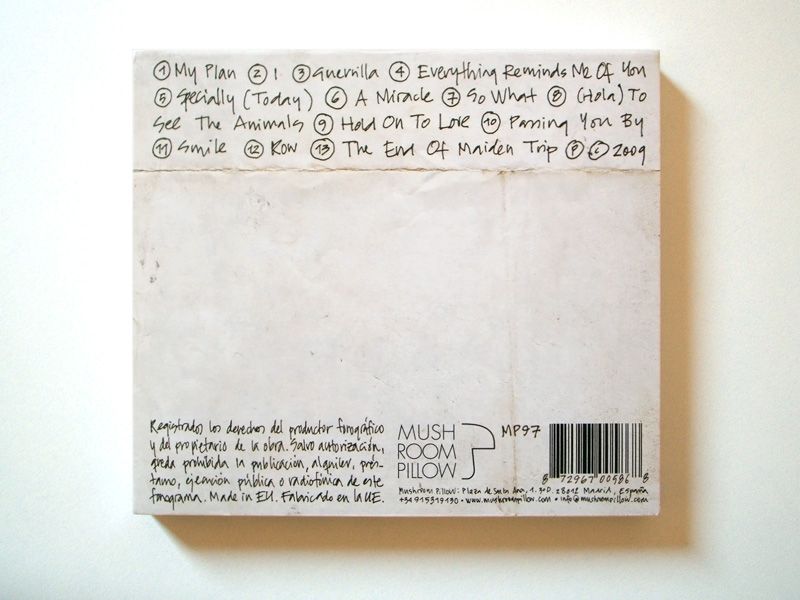 ① My Plan ② I ③ Guerrilla ④ Everything Reminds Me Of You
⑤ Specially (Today) ⑥ A Miracle ⑦ So What ⑧ (Hola) To
See The Animals ⑨ Hold On To Love ⑩ Passing You By
⑪ Smile ⑫ Row ⑬ The End Of Maiden Trip Ⓟ © 2009
Registrados los derechos del productor fonográfico
y del propietario de la obra. Salvo autorización,
queda prohibida la publicación, alquiler, prés-
tamo, ejecución pública o radiofónica de este
fonograma. Made in EU. Fabricado en la UE.
MUSH
ROOM
PILLOW
MP97
8 72967 00586 8
Mushroom Pillow: Plaza de Santa Ana, 1. 3ºD. 28012 Madrid, España
+34 915319130 · www.mushroompillow.com · info@mushroompillow.com